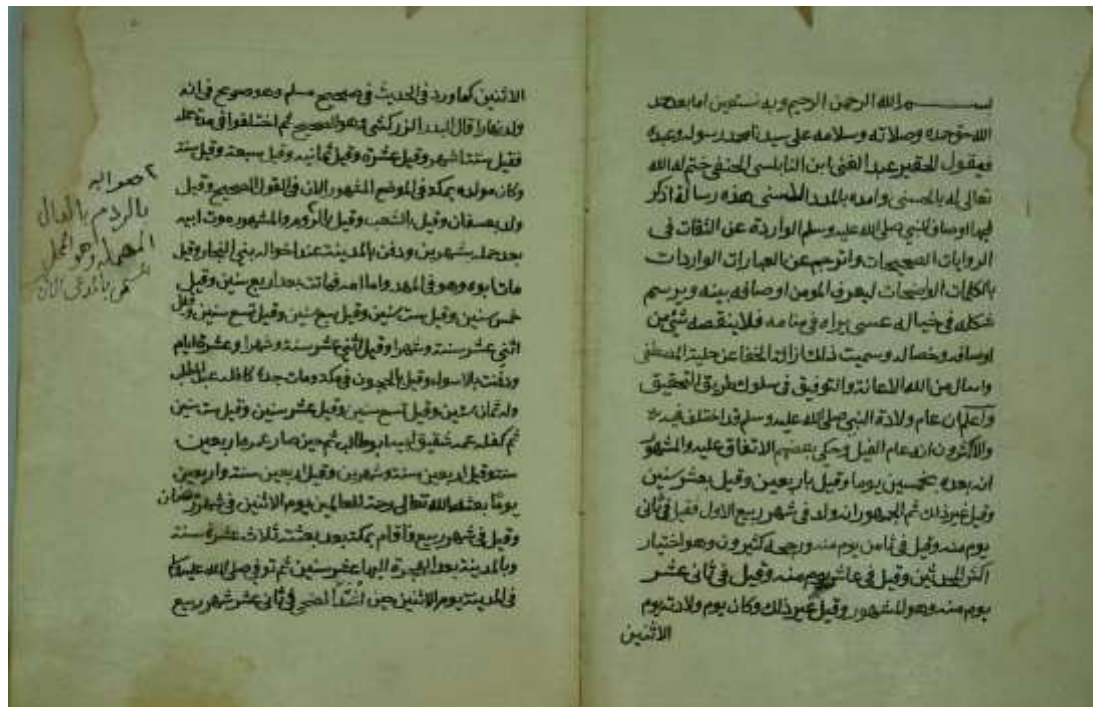 بسم الله الرحمن الرحيم وبه نستعين اما بعد حمد
الله حق حمده وصلاته وسلامه على سيدنا محمد رسوله وعبده
فيقول الحقير عبد الغنى ابن النابلسى الحنفى ختم الله
تعالى له بالحسنى وامده بالمدد الاسنى هذه رسالة اذكر
فيها اوصاف النبى صلى الله عليه وسلم الواردة عن الثقات فى
الروايات الصحيحات واترجم عن العبارات الواردات
بالكلمات الواضحات ليعرف المومن اوصافه بينه ويرسم
شكله فى خياله عسى يراه فى منامه فلا ينقصه شئ من
اوصافه وخصاله وسميت ذلك ازالة الخفا عن حلية المصطفى
واسال من الله الاعانة والتوفيق فى سلوك طريق التحقيق
واعلم ان عام ولادة النبى صلى الله عليه وسلم قد اختلف فيه
والاكثرون انه عام الفيل وحكى بعضهم الاتفاق عليه والمشهور
انه بعده بخمسين يوما وقيل باربعين وقيل بعشر سنين
وقيل غير ذلك ثم الجمهور انه ولد فى شهر ربيع الاول فقيل فى ثانى
يوم منه وقيل فى ثامن يوم منه ورجحه كثيرون وهو اختيار
اكثر المحدثين وقيل فى عاشر يوم منه وقيل فى ثانى عشر
يوم منه وهو المشهور وقيل غير ذلك وكان يوم ولادته يوم
الاثنين
الاثنين كما ورد فى الحديث فى صحيح مسلم وهو صريح فى انه
ولد نهارا قال البدر الزركشى وهو الصحيح ثم اختلفوا فى مدة حمله
فقيل ستة اشهر وقيل عشرة وقيل ثمانيه وقيل سبعة وقيل سنة
وكان مولده بمكة فى الموضع المشهور الان فى القول الصحيح وقيل
ولد بعسفان وقيل بالشعب وقيل بالردم والمشهور موت ابيه
بعد حمله بشهرين ودفن بالمدينة عند اخواله بنى النجار وقيل
مات ابوه وهو فى المهد واما امه فماتت بعد اربع سنين وقيل
خمس سنين وقيل ست سنين وقيل سبع سنين وقيل تسع سنين وقيل
اثنى عشر سنة وشهرا وقيل اثنى عشر سنة وشهرا وعشرة ايام
ودفنت بالابواء وقيل بالحجون فى مكة ومات جده كافله عبد المطلب
وله ثمان سنين وقيل تسع سنين وقيل عشر سنين وقيل ست سنين
ثم كفله عمه شقيق ابيه ابو طالب ثم حين صار عمره اربعين
سنة وقيل اربعين سنة وشهرين وقيل اربعين سنة واربعين
يوما بعثه الله تعالى رحمة للعالمين يوم الاثنين فى شهر رمضان
وقيل فى شهر ربيع واقام بمكة بعد بعثته ثلاث عشرة سنة
وبالمدينة بعد الهجرة اليها عشر سنين ثم توفى صلى الله عليه وسلم
فى المدينة يوم الاثنين حين اشتد الضحى فى ثانى عشر شهر ربيع
صوابه
بالردم بالدال
المهملة وهو محل